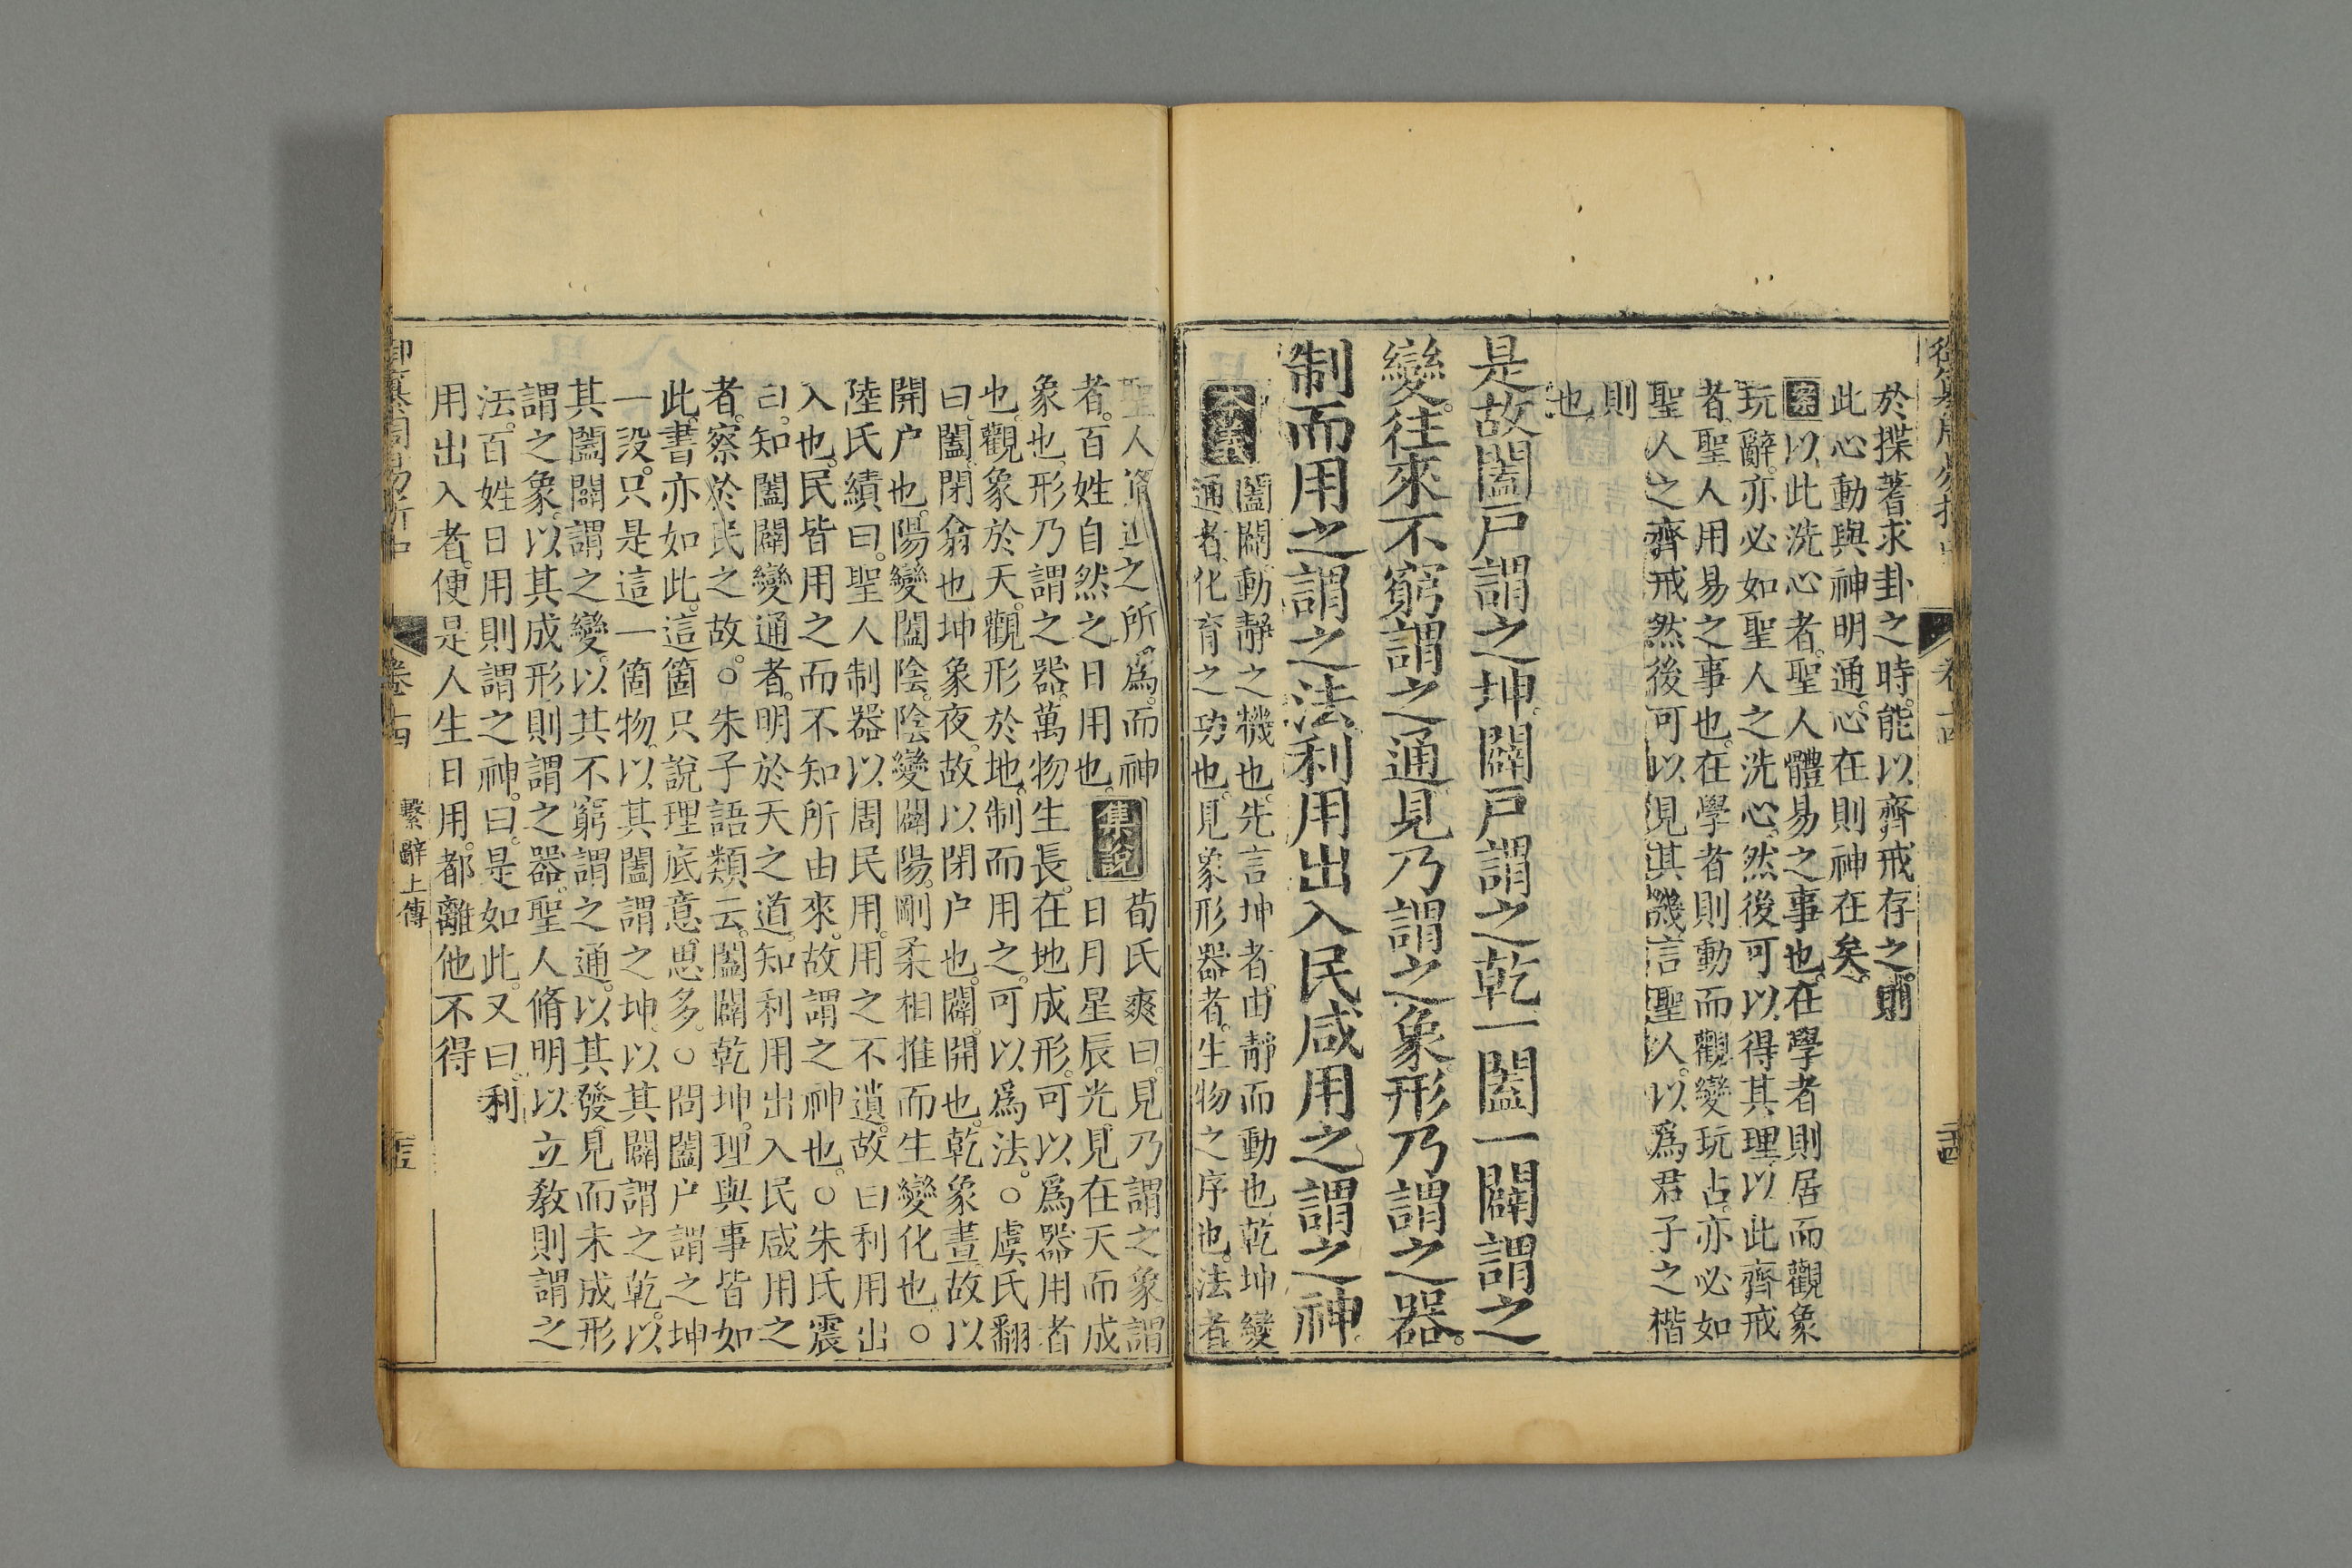 於揲蓍求卦之時。能以齊戒存之。則
此心動與神明通。心在則神在矣。
案以此洗心者。聖人體易之事也。在學者則居而觀象
玩辭。亦必如聖人之洗心。然後可以得其理。以此齊戒
者。聖人用易之事也。在學者則動而觀變玩占。亦必如
聖人之齊戒然後可以見其幾。言聖人。以爲君子之楷
則
也。
是故闔戸謂之坤。闢戸謂之乾一闔一闢謂之
變。往來不窮謂之通。見乃謂之象。形乃謂之器。
制而用之謂之法。利用出入民咸用之謂之神。
本義
闔闢。動靜之機也。先言坤者。由靜而動也。乾坤變
通者。化育之功也。見象形器者。生物之序也。法者
聖人脩道之所爲。而神
者。百姓自然之日用也。
集說
荀氏爽曰。見乃謂之象謂
日月星辰光見在天而成
象也。形乃謂之器。萬物生長。在地成形。可以爲器用者
也。觀象於天。觀形於地。制而用之。可以爲法。○虞氏翻
曰。闔。閉翕也。坤象夜。故以閉户也。闢。開也。乾象晝。故以
開户也。陽變闔陰。陰變闢陽。剛柔相推而生變化也。○
陸氏績曰。聖人制器以周民用。用之不遺。故曰利用出
入也。民皆用之而不知所由來。故謂之神也。○朱氏震
曰。知闔闢變通者。明於天之道。知利用出入民咸用之
者。察於民之故。○朱子語類云。闔闢乾坤。理與事皆如
此。書亦如此。這箇只說理底意思多。○問闔户謂之坤
一段。只是這一箇物。以其闔謂之坤。以其闢謂之乾。以
其闔闢謂之變。以其不窮謂之通。以其發見而未成形
謂之象。以其成形則謂之器。聖人脩明以立教則謂之
法。百姓日用則謂之神。曰。是如此。又曰。利
用出入者。便是人生日用。都離他不得
御纂周易折中
卷十四
繫辭上傳